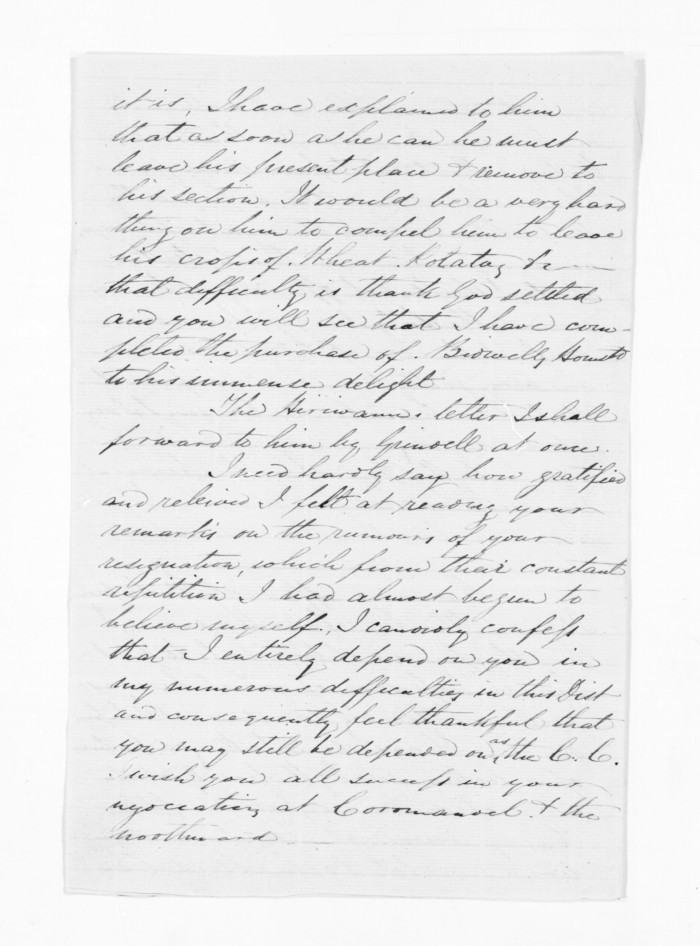 it is, I have explained to him
that as soon as he can he must
leave his present place & remove to
his section. It would be a very hard
thing on him to compel him to leave
his crops of Wheat. Potatoes &c
that difficulty is thank God settled
and you will see that I have com-
pleted the purchase of Bidwells House
to his immense delight
The letter I shall
forward to him by Grindell at once.
I need hardly say how gratified
and relieved I felt at reading your
remarks on the rumours of your
resignation, which from their constant
repitition I had almost begun to
believe myself. I candidly confess
that I entirely depend on you in
my numerous difficulties in this Dist
and consequently feel thankful that
you may still be depended on as the C. C.
I wish you all success in your
negociations at Coromandel & the
northward